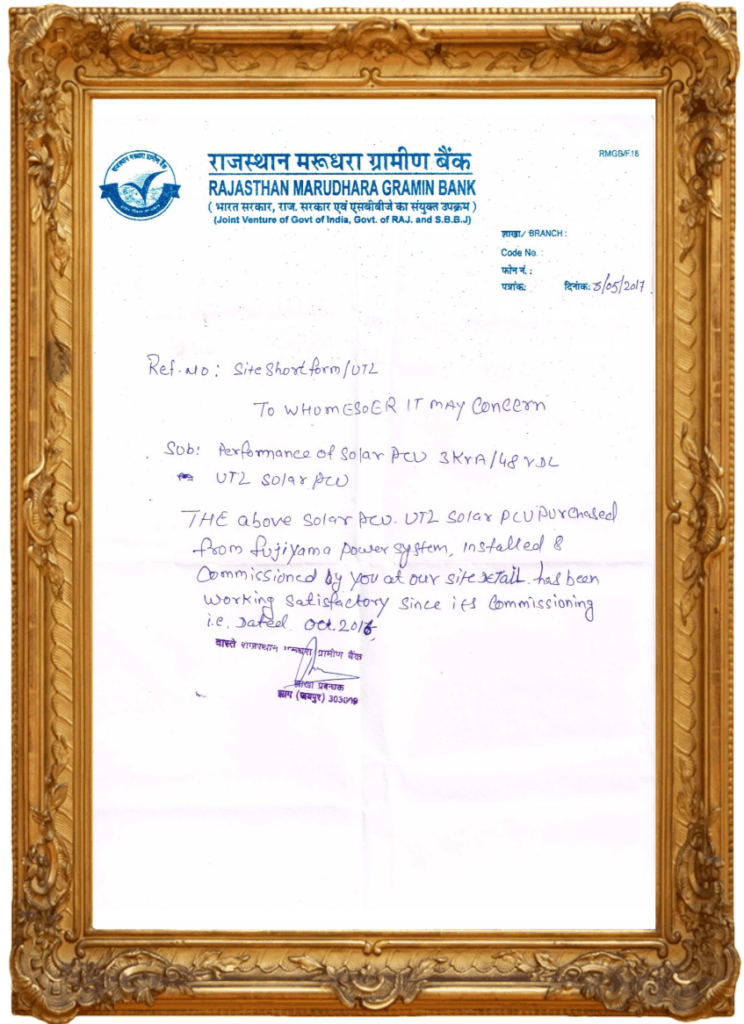 राजस्थान मरूधरा ग्रामीण बैंक
RAJASTHAN MARUDHARA GRAMIN BANK
( भारत सरकार, राज. सरकार एवं एसबीबीजे का संयुक्त उपक्रम )
(Joint Venture of Govt of India, Govt. of RAJ. and S.B.B.J)
RMGB/F.18
शाखा/ BRANCH :
Code No. :
फोन नं. :
पत्रांक: दिनांक: 5/05/2017
Ref. No: Site Short form/UTL
TO WHOMESOER IT MAY Concern
Sub: Performance of Solar PCU 3KVA/48 VDC
UTL Solar PCU
THE above Solar PCU. UTL Solar PCU Purchased
from fujiyama power system, installed &
Commissioned by you at our site Detail. has been
working satisfactory since its Commissioning
i.e. Dated. Oct. 2016
वास्ते राजस्थान मरूधरा ग्रामीण बैंक
शाखा प्रबन्धक
(जयपुर)